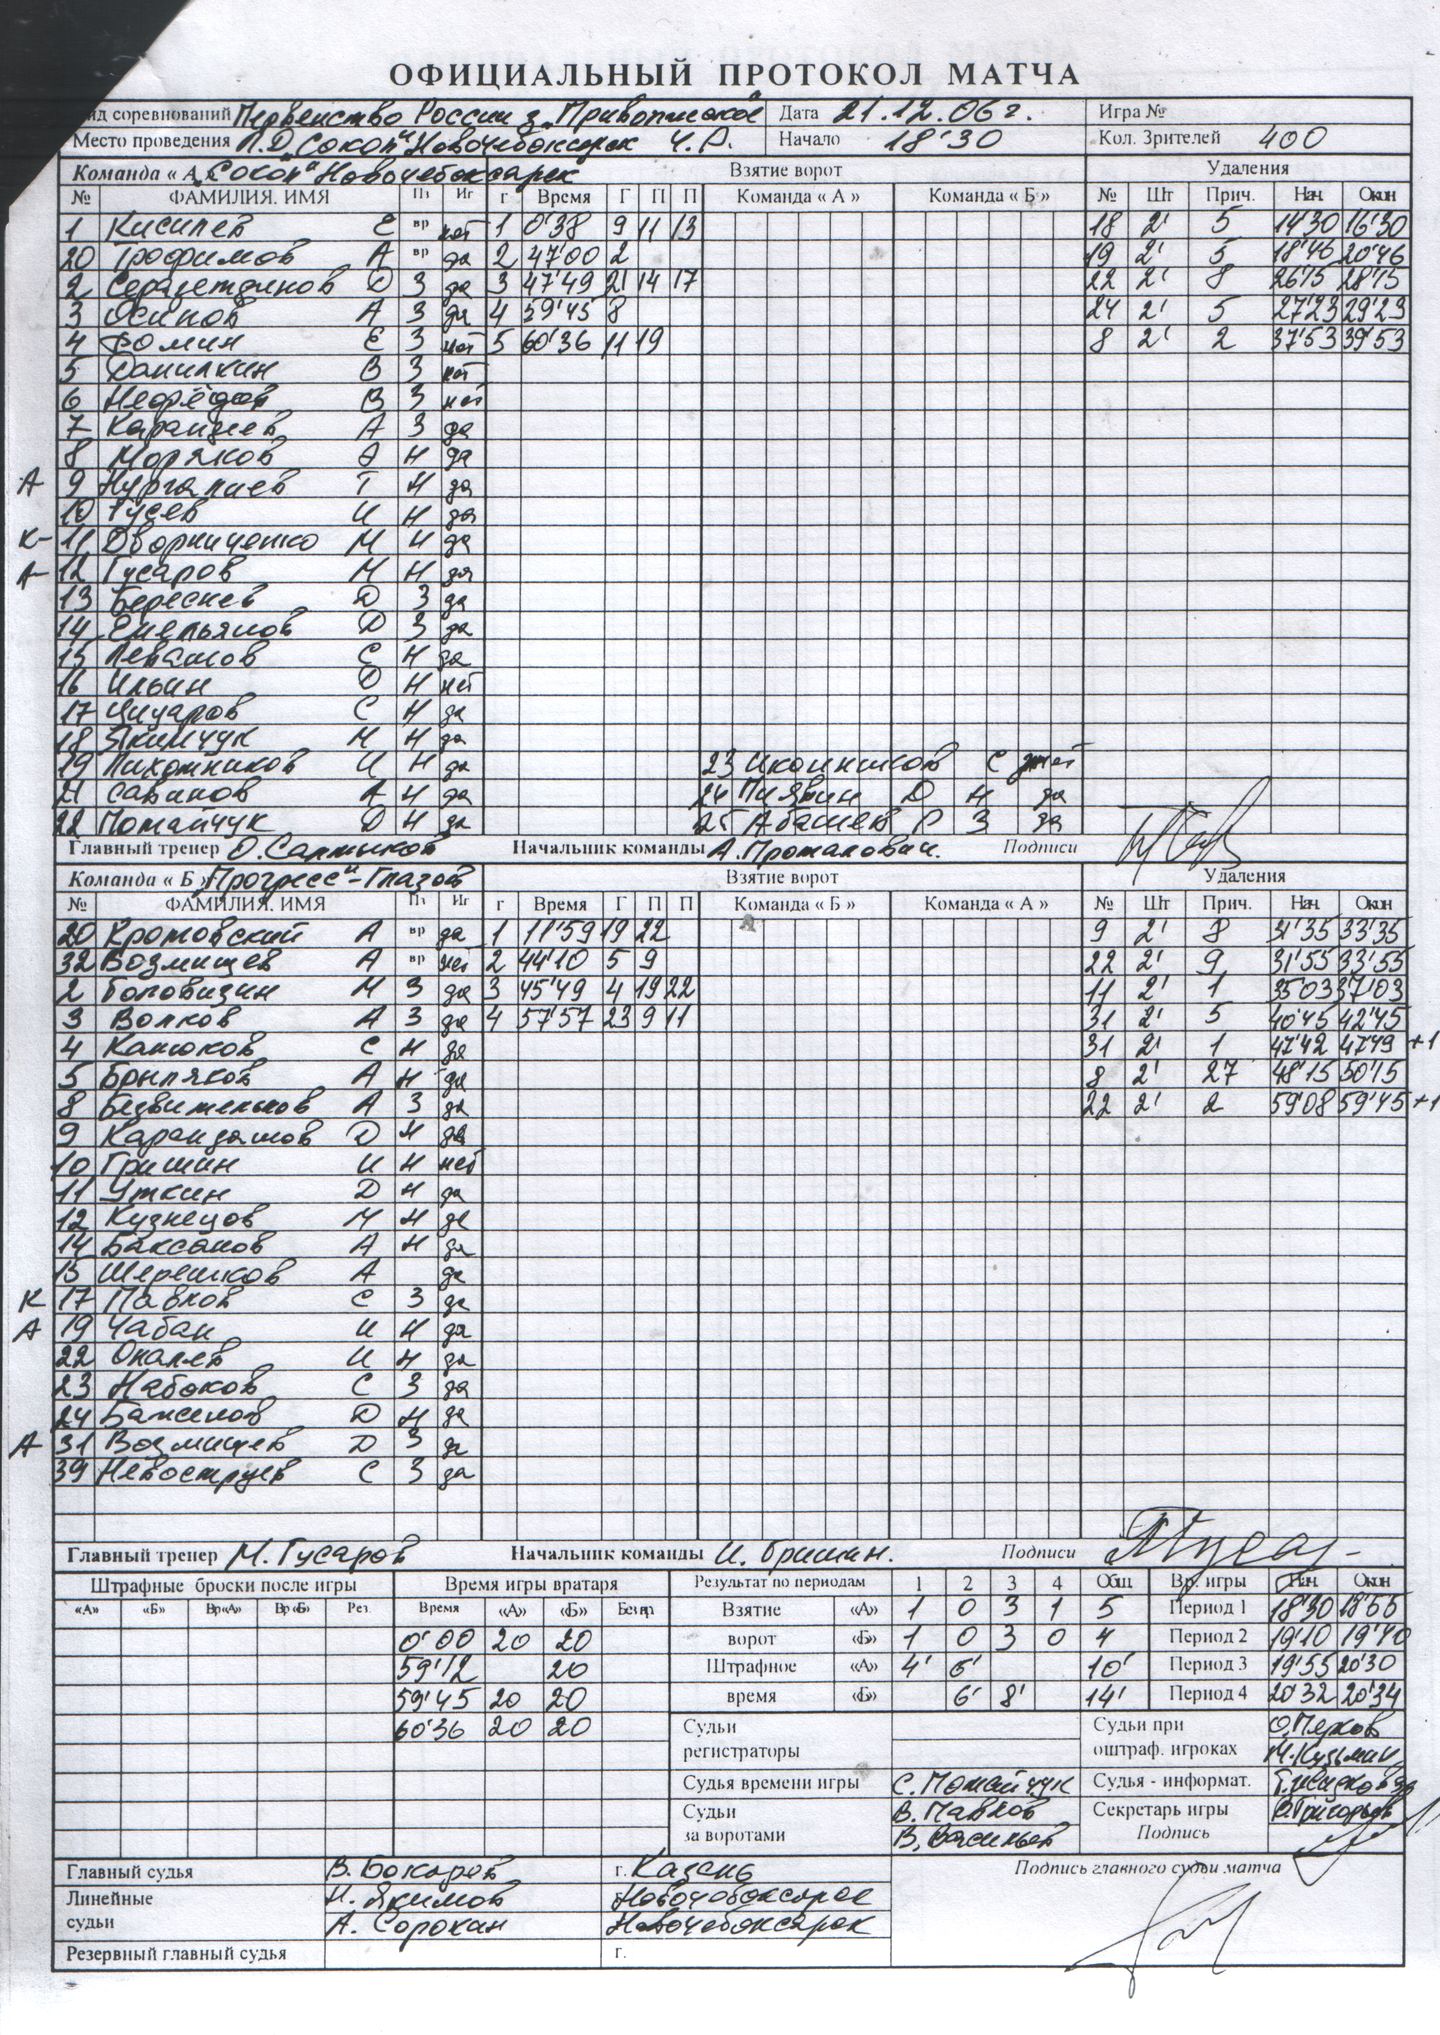 ОФИЦИАЛЬНЫЙ ПРОТОКОЛ МАТЧА
ид соревнований Первенство России з. "Приволжское" Дата 21.12.06 г. Игра №
Место проведения Л.Д. "Сокол" Новочебоксарск Ч.Р. Начало 18'30 Кол. Зрителей 400
Команда « А "Сокол" Новочебоксарск Взятие ворот Удаления
№ ФАМИЛИЯ. ИМЯ Пз Иг г Время Г П П Команда « А » Команда « Б » № Шт Прич. Нач. Окон
1 Киселев Е вр нет 1 0'38 9 11 13 18 2' 5 14'30 16'30
20 Трофимов А вр да 2 47'00 2 19 2' 5 18'46 20'46
2 Серазетдинов Д З да 3 47'49 21 14 17 22 2' 8 26'15 28'15
3 Осипов А З да 4 59'45 8 24 2' 5 27'23 29'23
4 Фомин Е З нет 5 60'36 11 19 8 2' 2 37'53 39'53
5 Данилкин В З нет
6 Нефёдов В З нет
7 Каранцев А З да
8 Моряков А Н да
А 9 Нургалиев Т Н да
10 Гусев И Н да
К- 11 Дворниченко М Н да
А- 12 Гусаров М Н да
13 Береснев Д З да
14 Емельянов Д З да
15 Левашов С Н да
16 Ильин Д Н нет
17 Цицаров С Н да
18 Якимчук М Н да
19 Пихотников И Н да 23 Иконников С нет
21 Савинов А Н да 24 Пиявин Д Н да
22 Помайчук Д Н да 25 Абашев Р З да
Главный тренер О. Салтыков Начальник команды А. Протапович. Подписи
Команда « Б » "Прогресс" - Глазов Взятие ворот Удаления
№ ФАМИЛИЯ. ИМЯ Пз Иг г Время Г П П Команда « Б » Команда « А » № Шт Прич. Нач. Окон
20 Кротовский А вр да 1 11'59 19 22 9 2' 8 31'35 33'35
32 Возмищев А вр нет 2 44'10 5 9 22 2' 9 31'55 33'55
2 Головизин М З да 3 45'49 4 19 22 11 2' 1 35'03 37'03
3 Волков А З да 4 57'57 23 9 11 31 2' 5 40'45 42'45
4 Канюков С Н да 31 2' 1 47'42 47'49 +1
5 Брыляков А Н да 8 2' 27 48'15 50'15
8 Безвительнов А З да 22 2' 2 59'08 59'45 +1
9 Карандашов Д Н да
10 Гришин И Н нет
11 Уткин Д Н да
12 Кузнецов М Н да
14 Баксанов А Н да
15 Шерешков А да
К 17 Павлов С З да
А 19 Чабан И Н да
22 Опалев И Н да
23 Набоков С З да
24 Баженов Д Н да
А 31 Возмищев Д З да
39 Невоструев С З да
Главный тренер М. Гусаров Начальник команды И. Гришин. Подписи
Штрафные броски после игры Время игры вратаря Результат по периодам 1 2 3 4 Общ. Вр. игры Нач. Окон
«А» «Б» Вр«А» Вр«Б» Рез. Время «А» «Б» Без вр Взятие «А» 1 0 3 1 5 Период 1 18'30 18'55
0'00 20 20 ворот «Б» 1 0 3 0 4 Период 2 19'10 19'40
59'12 20 Штрафное «А» 4' 6' 10' Период 3 19'55 20'30
59'45 20 20 время «Б» 6' 8' 14' Период 4 20'32 20'34
60'36 20 20 Судьи Судьи при О. Перков
регистраторы оштраф. игроках М. Кузьмин
Судья времени игры С. Помайчук Судья - информат.
Судьи В. Павлов Секретарь игры В. Григорьев
за воротами В. Васильев Подпись
Главный судья В. Бокарев г. Казань Подпись главного судьи матча
Линейные Н. Якимов Новочебоксарск
судьи А. Сорокан Новочебоксарск
Резервный главный судья г.